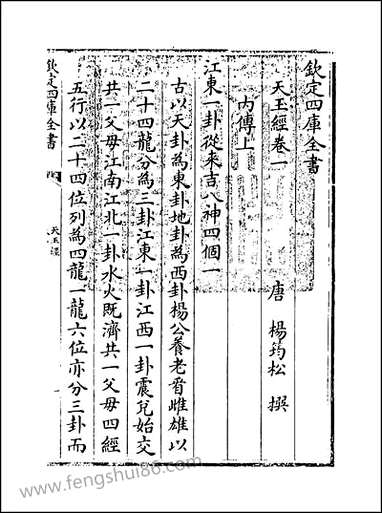 欽定四庫全書
天玉經卷一
唐 楊筠松 撰
内傳上
江東一卦從来吉八神四個一
古以天卦為東卦地卦為西卦楊公養老看雌雄以
二十四龍分為三卦江東一卦江西一卦震兌始交
共一父母江南江北一卦水火既濟共一父母四經
五行以二十四位列為四龍一龍六位亦分三卦而
欽定四庫全書
天玉經
www.fengshui86.com